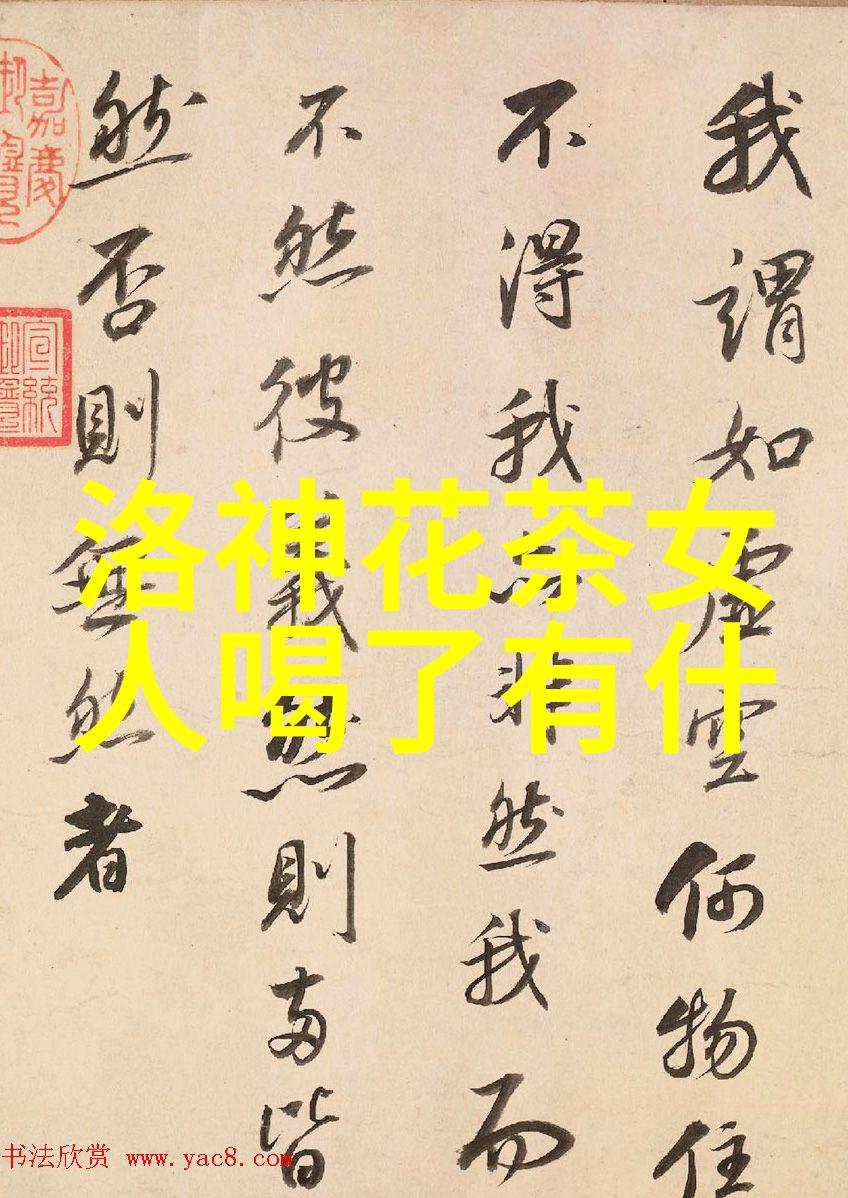 我謂如虛空何物住
不得我亦非然我而
不然彼我然則兩皆
然否則無然者
洛神花茶女
人喝了有什
嘉慶御覽
宣統御覽
书法欣赏 www.yac8.com